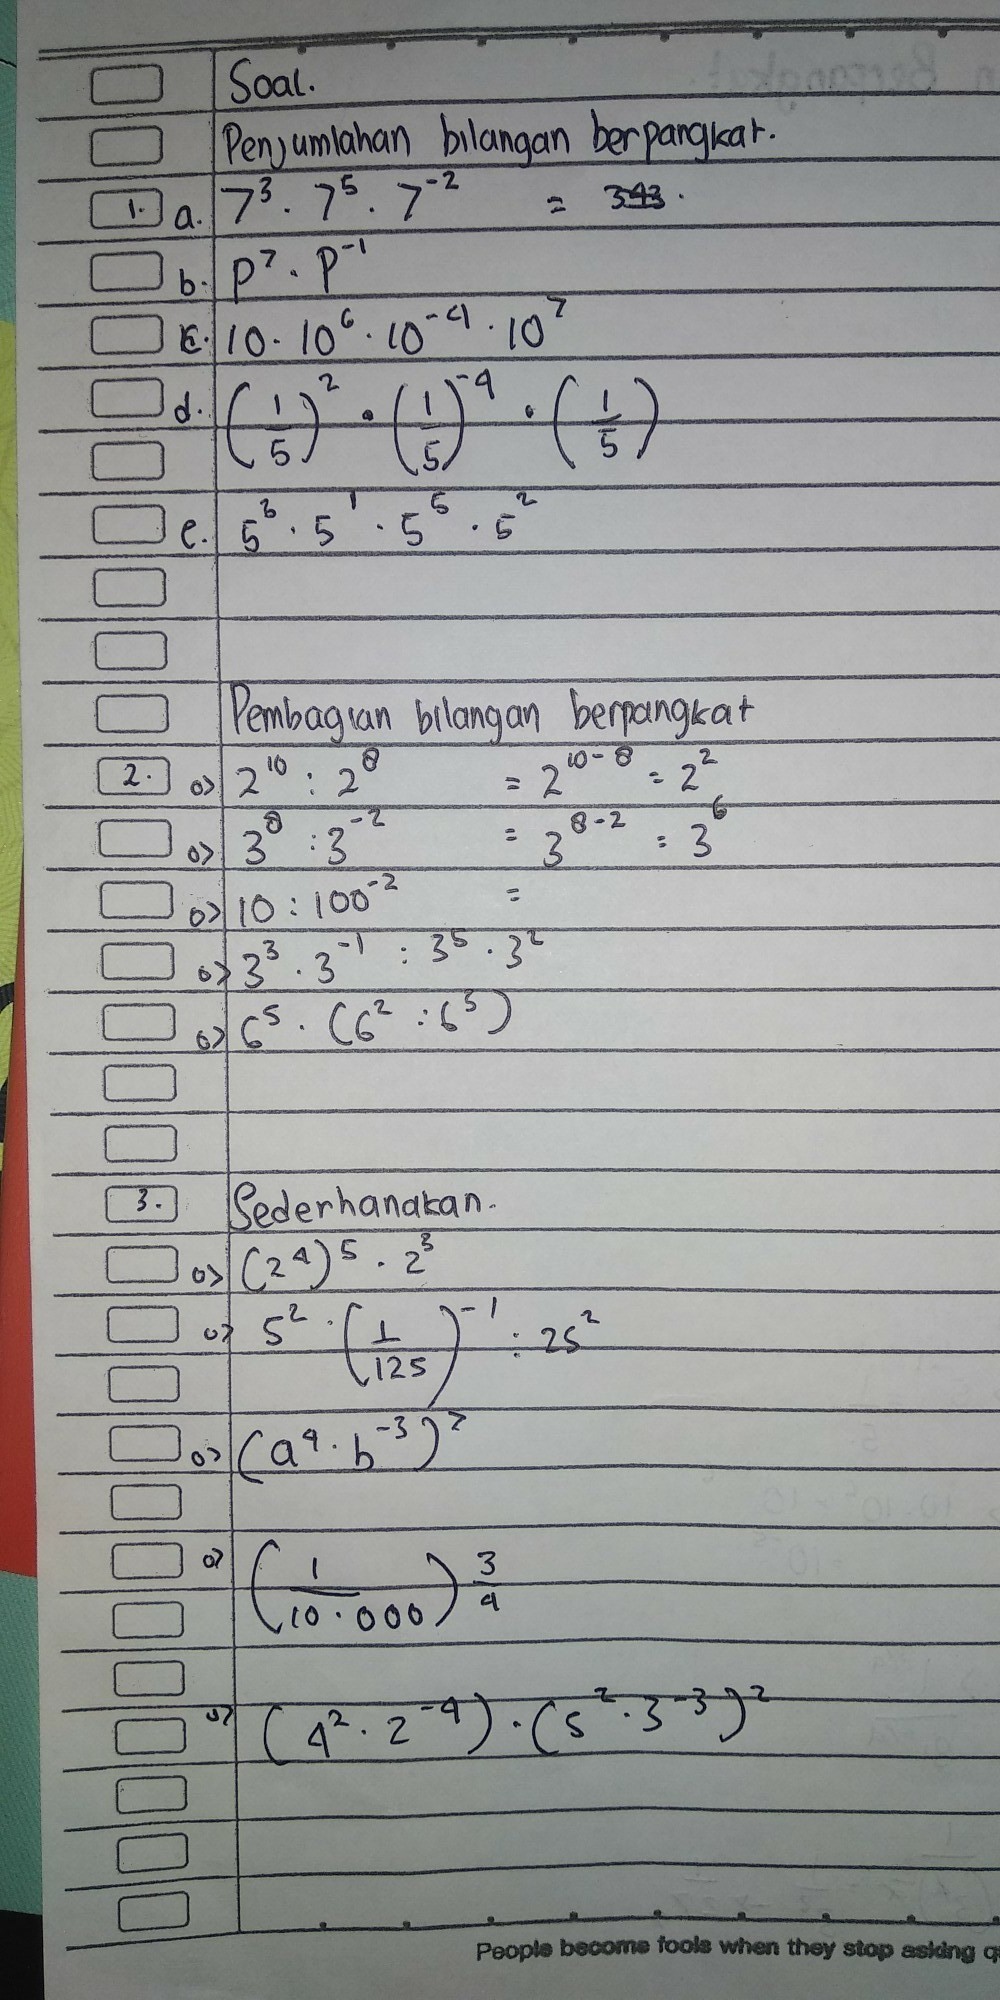 Soal.
Penjumlahan bilangan berpangkat.
1. a. 7³ . 7⁵ . 7⁻² = 343.
b. p⁷ . p⁻¹
c. 10 . 10⁶ . 10⁻⁴ . 10⁷
d. (1/5)² . (1/5)⁻⁴ . (1/5)
e. 5³ . 5¹ . 5⁵ . 5²
Pembagian bilangan berpangkat
2. o> 2¹⁰ : 2⁸ = 2¹⁰⁻⁸ = 2²
o> 3⁸ : 3⁻² = 3⁸⁻² = 3⁶
o> 10 : 100⁻² =
o> 3³ . 3⁻¹ : 3⁵ . 3²
o> 6⁵ . (6² : 6³)
3. Sederhanakan.
o> (2⁴)⁵ . 2³
o> 5² . (1/125)⁻¹ : 25²
o> (a⁴ . b⁻³)⁷
o> (1/10.000) 3/4
o> (4² . 2⁻⁴) . (5² . 3⁻³)²
People become fools when they stop asking q